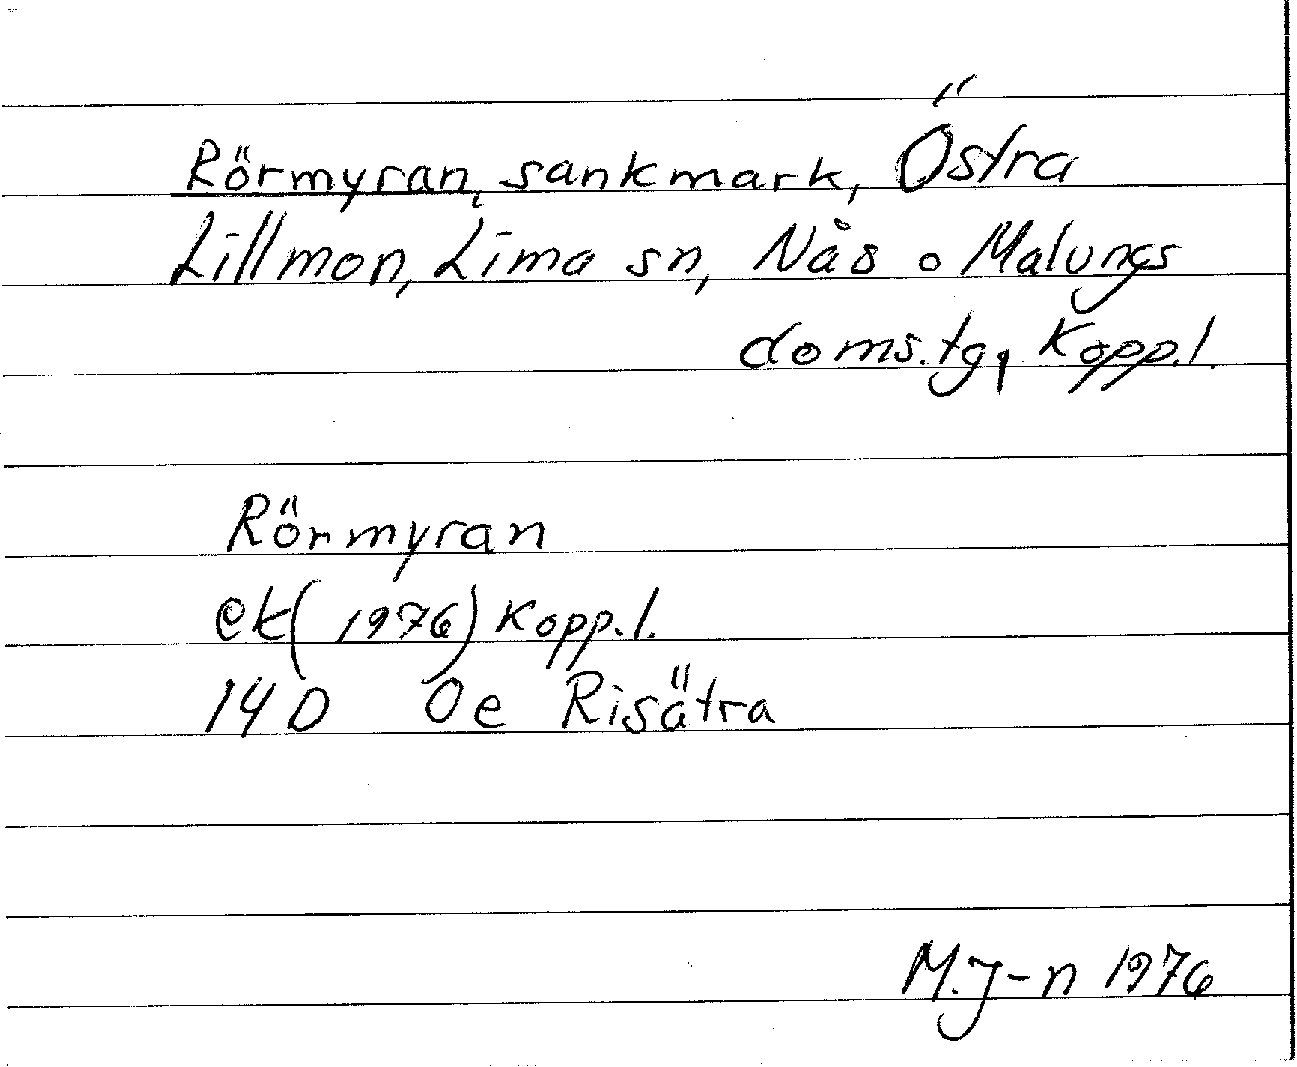 Rörmyran, sankmark, Östra
Lillmon, Lima sn, Nås o Malungs
doms.tg, Kopp.l.
Rörmyran
ek(1976) Kopp.l.
14D 0e Risätra
M.J-n 1976